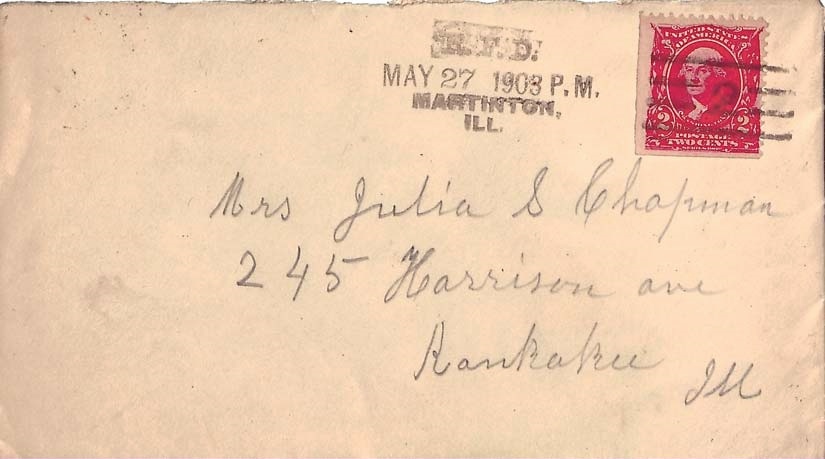 R.F.D.
MAY 27 1903 P.M.
MARTINTON,
ILL.
UNITED STATES
OF AMERICA
2 2
POSTAGE
TWO CENTS
Mrs Julia S Chapman
245 Harrison ave
Kankakee
Ill